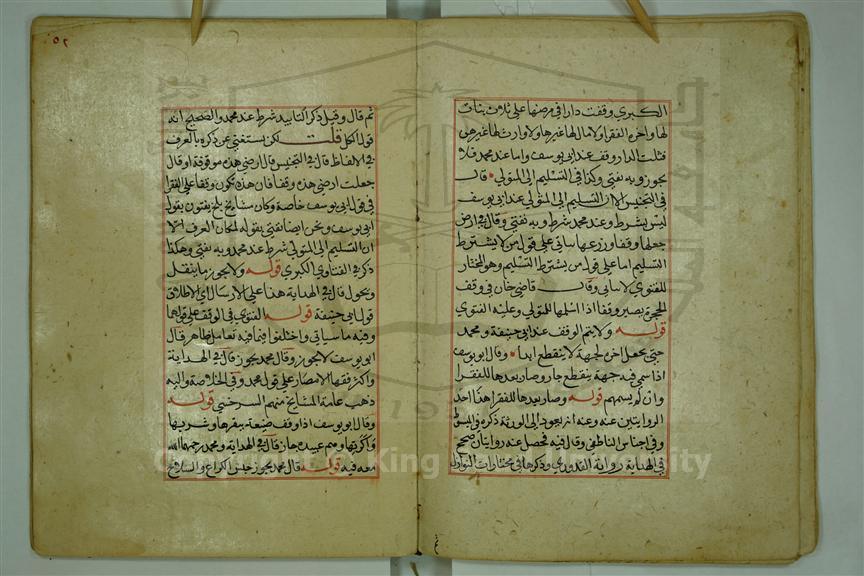 الكبري وقفت دارا في مرضها على ثلاث بنات
لها واخره الفقرا ولا مال لها غيرها ولا وارث لها غيرهن
فثلث الدار وقف عند ابي يوسف واما عند محمد فلا
يجوز وبه نفتي وكذا في التسليم الى المتولي قال
في التجنيس الا ان التسليم الى المتولي عند ابي يوسف
ليس بشرط وعند محمد شرط وبه نفتي وقال في ارض
جعلها وقفا وزرعها سياتي على قول من لا يشترط
التسليم اما على قول من يشترط التسليم وهو المختار
للفتوي لا ياتي وقال قاضي خان في وقف
الحجرة يصير وقفا اذا سلمها للمتولي وعليه الفتوي
قوله ولا يتم الوقف عند ابي حنيفة ومحمد
حتى يجعل اخره لجهة لا تنقطع ابدا وقال ابو يوسف
اذا سمي فيه جهة ينقطع جاز وصار بعدها للفقرا
وان لم يسمهم قوله وصار بعدها للفقرا هذا احد
الروايتين عنه وعنه انه يعود الى الورثة ذكره في المبسوط
وفي اجناس الناطفي وقال فيه فحصل عنه روايتان صحح
في الهداية رواية القدوري وذكرها في مختارات النوازل
٥٢
ثم قال وقيل ذكر التابيد شرط عند محمد والصحيح انه
قول الكل قلت لكن يستغنى عن ذكره بالعرف
في الالفاظ قال في التجنيس قال ارضي هذه موقوفة او قال
جعلت ارضي هذه وقفا فان هذه تكون وقفا على الفقرا
في قول ابي يوسف خاصة وكان مشايخ بلخ يفتون بقول
ابي يوسف ونحن ايضا نفتي بقوله لمكان العرف الا
ان التسليم الى المتولي شرط عند محمد وبه نفتي وهكذا
ذكر في الفتاوي الكبري قوله ولا يجوز ما ينقل
ويحول قال في الهداية هذا على الارسال اي الاطلاق
قول ابي حنيفة قوله الفتوي في الوقف على قولهما
وفيه ما سياتي واختلفوا فيما فيه تعامل ظاهر قال
ابو يوسف لا يجوز وقال محمد يجوز قال في الهداية
واكثر فقها الامصار على قول محمد وفي الخلاصة واليه
ذهب عامة المشايخ منهم السرخسي قوله
وقال ابو يوسف اذا وقف ضيعة ببقرها وشربها
واكرتها وهم عبيده جاز قال في الهداية ومحمد رحمهما الله
معه فيه قوله قال محمد يجوز حبس الكراع والسلاح
Copyright © King Saud University